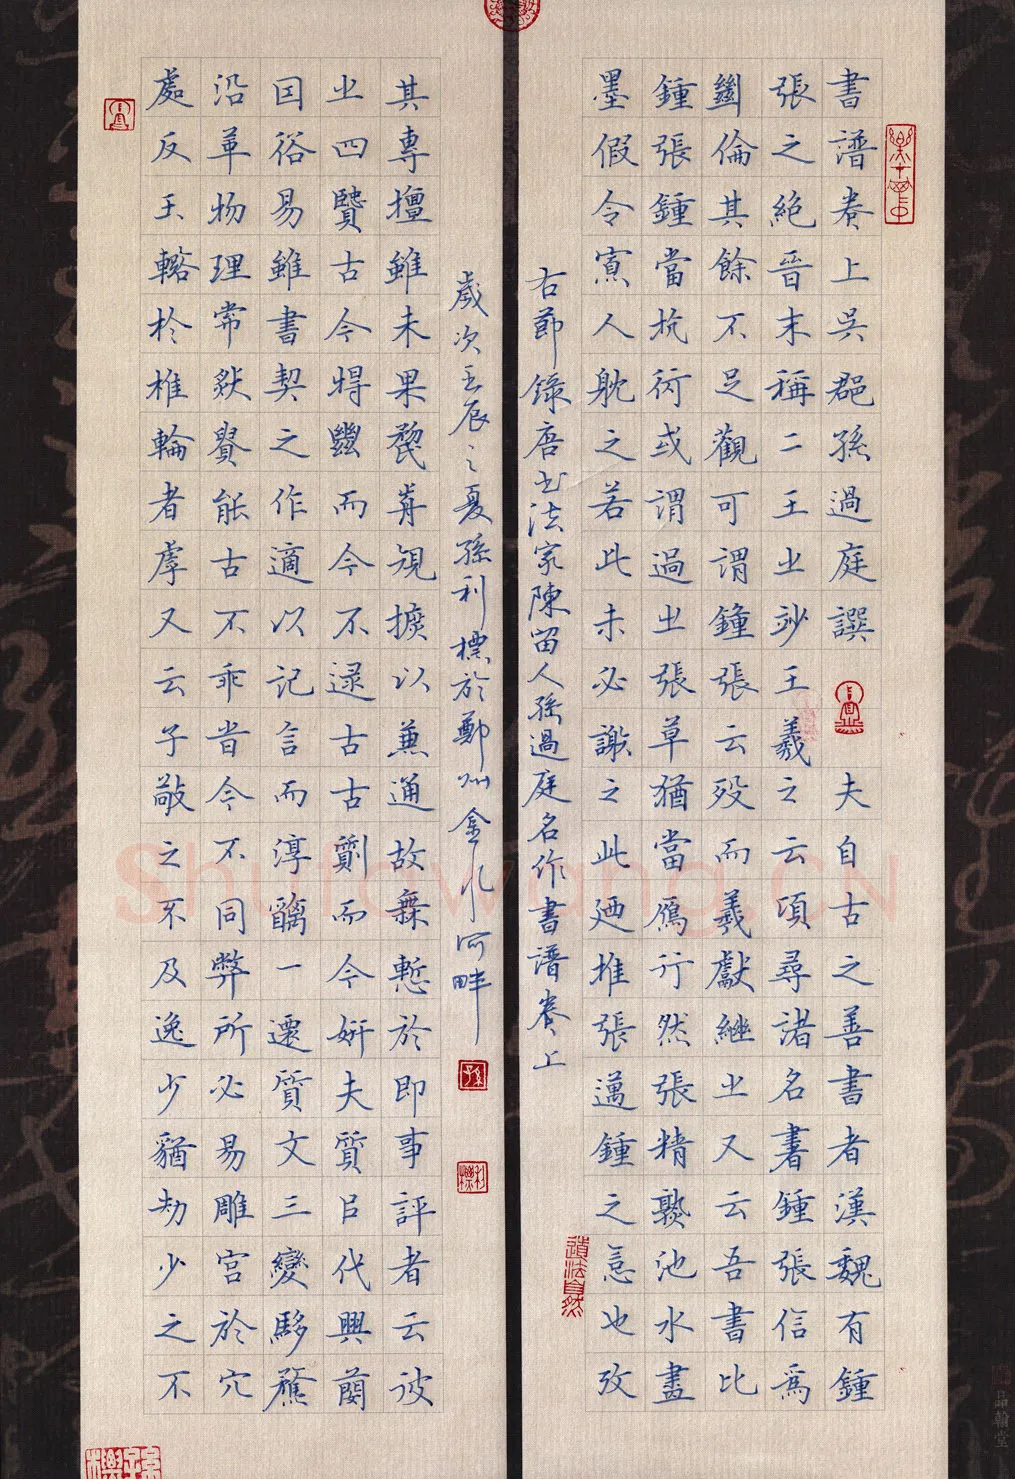 書譜卷上吳郡孫過庭撰 夫自古之善書者漢魏有鍾
張之絕晉末稱二王之妙王羲之云頃尋諸名書鍾張信為
絕倫其餘不足觀可謂鍾張云歿而羲獻繼之又云吾書比
鍾張鍾當抗行或謂過之張草猶當鴈行然張精熟池水盡
墨假令寡人耽之若此未必謝之此乃推張邁鍾之意也攷
道法自然
右節錄唐書法家陳留人孫過庭名作書譜卷上
歲次壬辰之夏孫利標於鄭州金水河畔
其專擅雖未果於前規摭以兼通故無慚於即事評者云彼
之四賢古今特絕而今不逮古古質而今妍夫質以代興妍
因俗易雖書契之作適以記言而淳醨一遷質文三變馳騖
沿革物理常然貴能古不乖時今不同弊所必易雕宮於穴
處反玉輅於椎輪者乎又云子敬之不及逸少猶逸少之不
Shufawang.CN
品翰堂